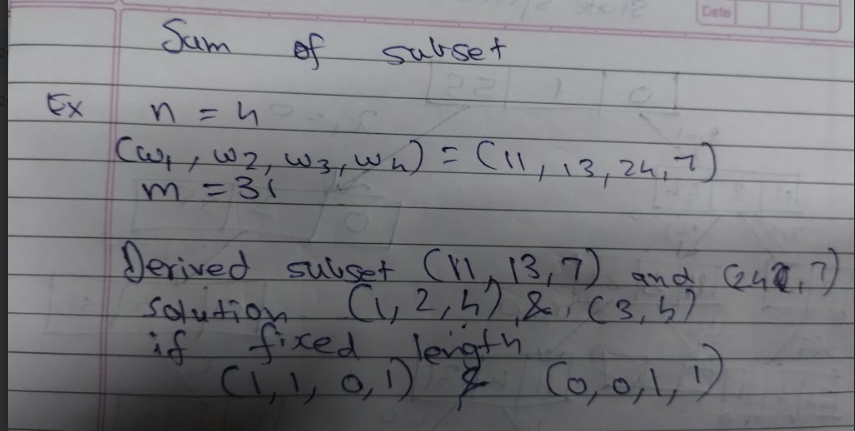 Date
Sum of subset
Ex n = 4
(w1, w2, w3, w4) = (11, 13, 24, 7)
m = 31
Derived subset (11, 13, 7) and (24, 7)
solution (1, 2, 4) & (3, 4)
if fixed length
(1, 1, 0, 1) & (0, 0, 1, 1)